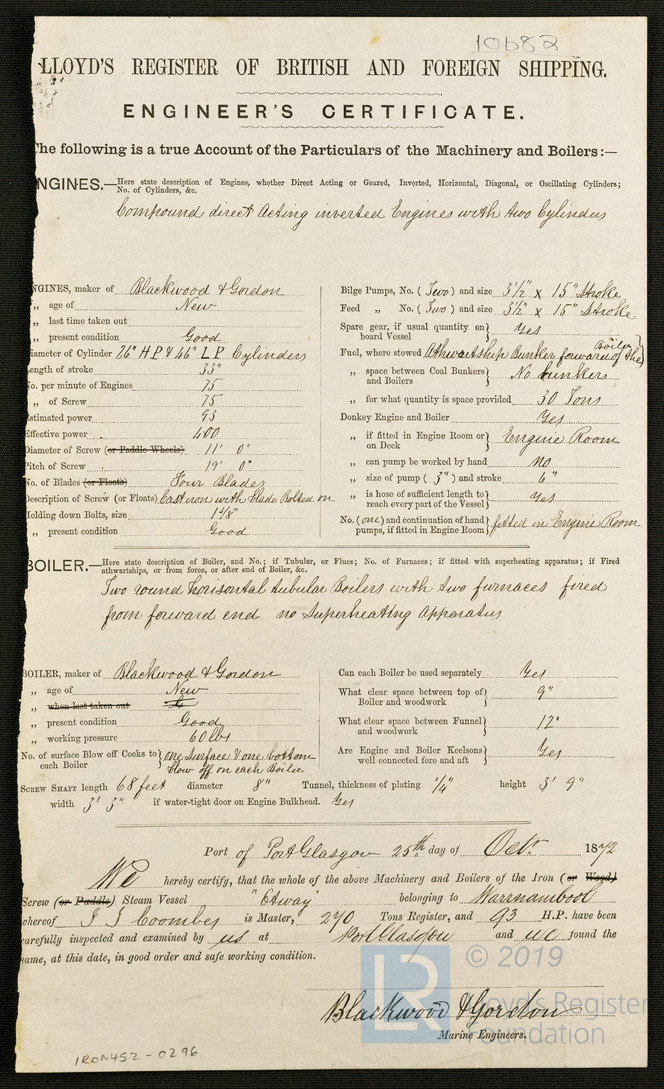 10682
LLOYD'S REGISTER OF BRITISH AND FOREIGN SHIPPING.
ENGINEER'S CERTIFICATE.
The following is a true Account of the Particulars of the Machinery and Boilers:—
NGINES.—Here state description of Engines, whether Direct Acting or Geared, Inverted, Horizontal, Diagonal, or Oscillating Cylinders;
No. of Cylinders, &c.
Compound direct Acting inverted Engines with two Cylinders
NGINES, maker of Blackwood & Gordon
„ age of New
„ last time taken out
„ present condition Good
Diameter of Cylinder 26" H P & 46" L P Cylinders
Length of stroke 33"
No. per minute of Engines 75
„ of Screw 75
Estimated power 93
Effective power 400
Diameter of Screw (or Paddle Wheels) 11' 0"
Pitch of Screw 19' 0"
No. of Blades (or Floats) Four Blades
Description of Screw (or Floats) Cast iron with Blade Bolted on
Holding down Bolts, size 1 3/8"
„ present condition Good
Bilge Pumps, No. (Two) and size 3½ x 15" Stroke
Feed „ No. (Two) and size 3½" x 15" Stroke
Spare gear, if usual quantity on board Vessel Yes
Fuel, where stowed Athwartship Bunker forward of the Boiler
„ space between Coal Bunkers and Boilers No bunkers
„ for what quantity is space provided 30 Tons
Donkey Engine and Boiler Yes
„ if fitted in Engine Room or on Deck Engine Room
„ can pump be worked by hand No
„ size of pump (3") and stroke 6"
„ is hose of sufficient length to reach every part of the Vessel Yes
No. (one) and continuation of hand pumps, if fitted in Engine Room fitted in Engine Room
BOILER.—Here state description of Boiler, and No.; if Tubular, or Flues; No. of Furnaces; if fitted with superheating apparatus; if Fired
athwartships, or from force, or after end of Boiler, &c.
Two round horisontal tubular Boilers with two furnaces fired
from forward end no Superheating Apparatus
BOILER, maker of Blackwood & Gordon
„ age of New
„ when last taken out
„ present condition Good
„ working pressure 60 lbs
No. of surface Blow off Cocks to each Boiler one Surface & one bottom
blow off on each Boiler
Can each Boiler be used separately Yes
What clear space between top of Boiler and woodwork 9"
What clear space between Funnel and woodwork 12"
Are Engine and Boiler Keelsons well connected fore and aft Yes
SCREW SHAFT length 68 feet diameter 8" Tunnel, thickness of plating ¼" height 3' 9"
width 3' 3" if water-tight door on Engine Bulkhead. Yes
Port of Port Glasgow 25th day of Octr 1872
We hereby certify, that the whole of the above Machinery and Boilers of the Iron (or Wood)
Screw (or Paddle) Steam Vessel "Otway" belonging to Warrnambool
whereof J J Coombes is Master, 270 Tons Register, and 93 H.P. have been
carefully inspected and examined by us at Port Glasgow and we found the
same, at this date, in good order and safe working condition.
Blackwood & Gordon
Marine Engineers.
IRON452-0296
LR
© 2019
Lloyd's Register
Foundation